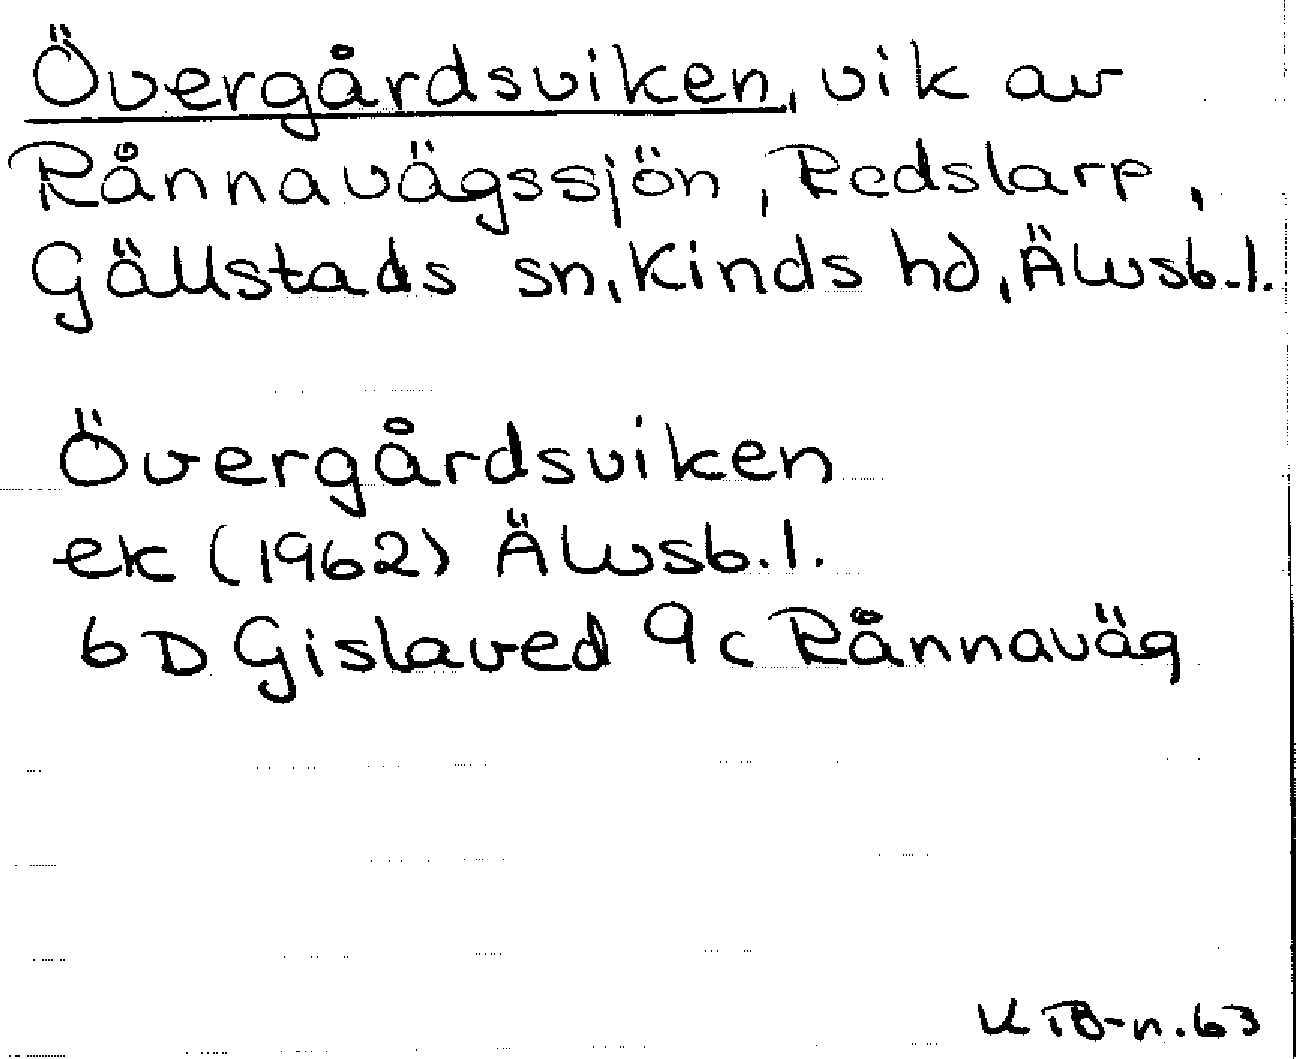 Övergårdsviken, vik av
Rånnavägssjön, Redslarp,
Gällstads sn, Kinds hd, Älvsb.l.
Övergårdsviken
ek (1962) Älvsb.l.
6D Gislaved 9c Rånnaväg
n.63